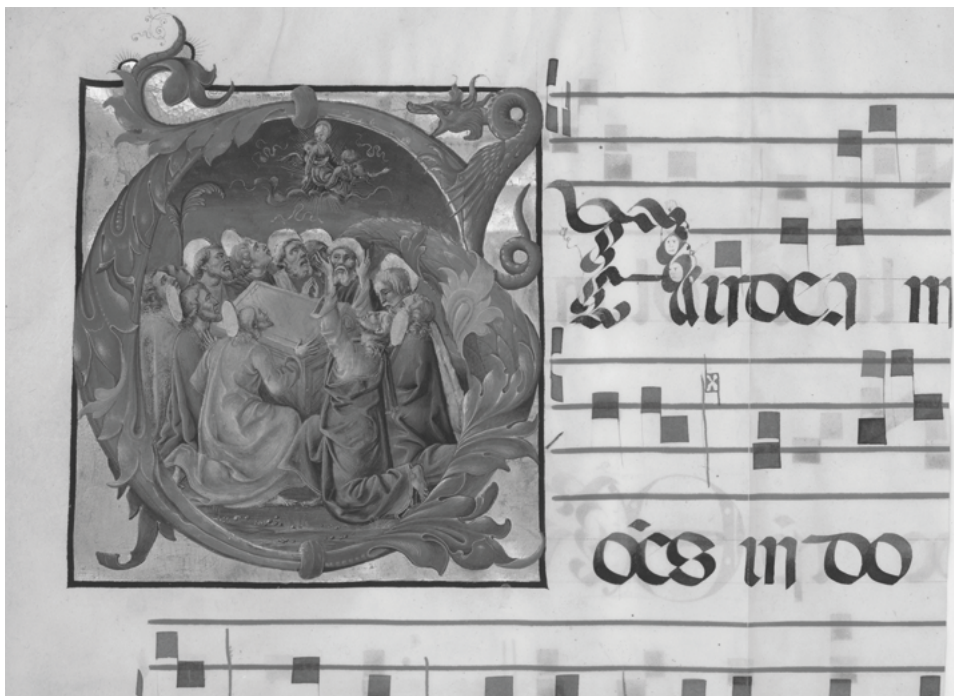 G Audea m
ōes in do